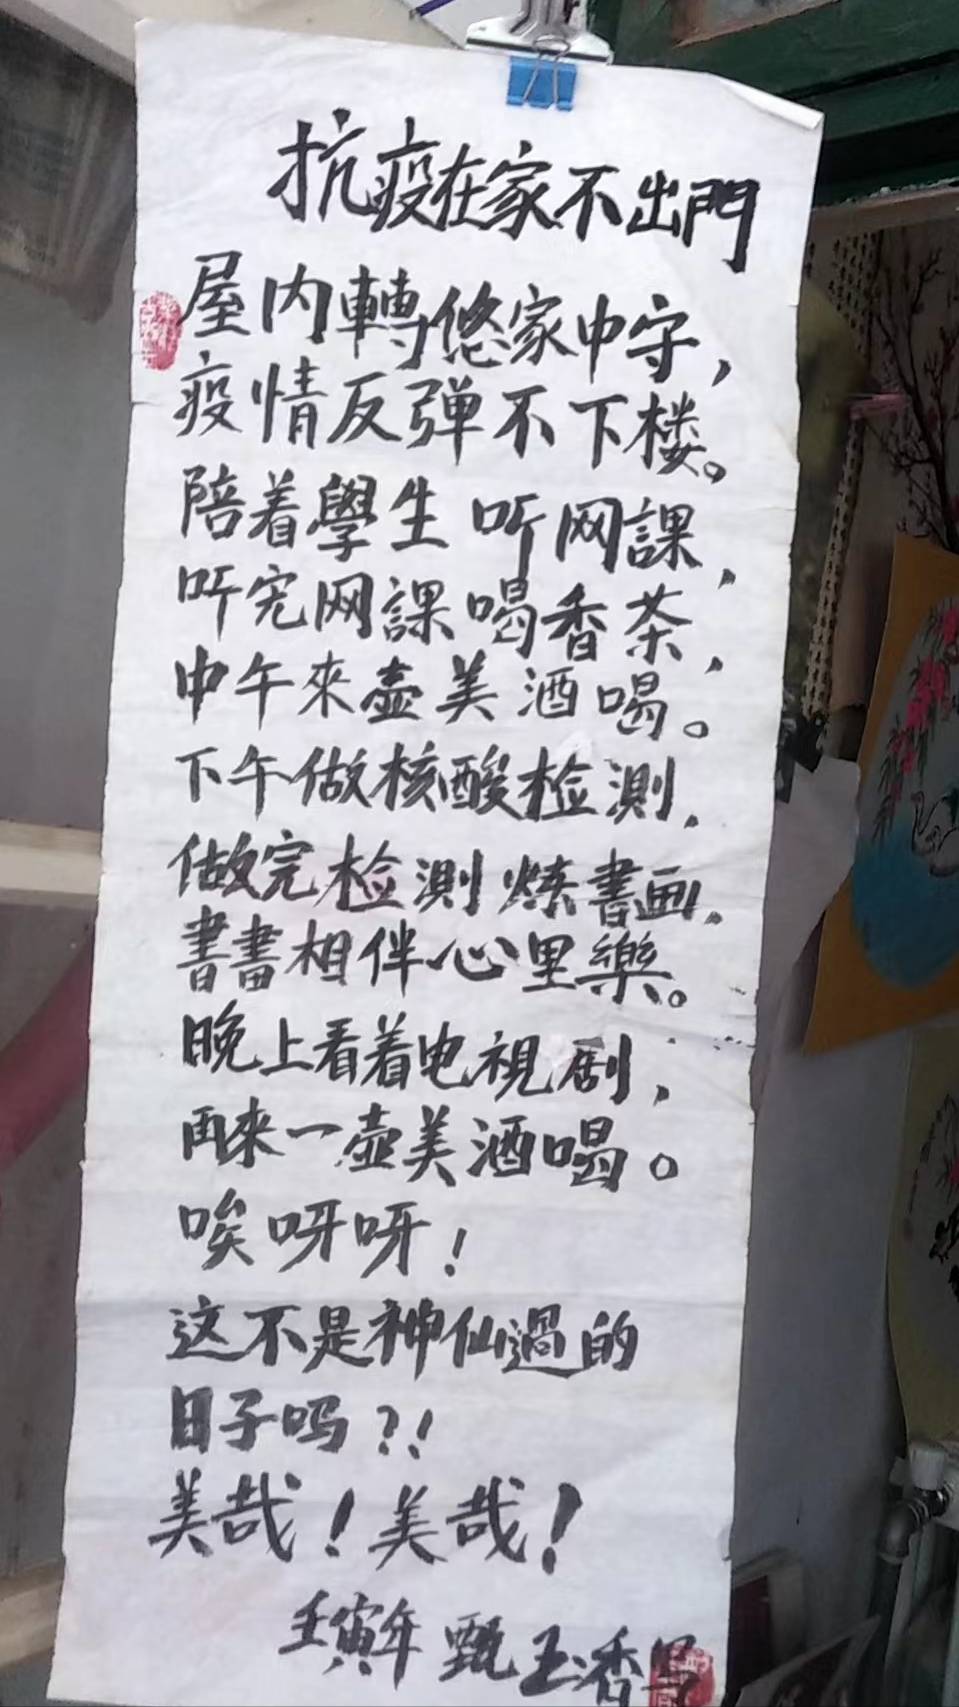 抗疫在家不出門
屋内轉悠家中守，
疫情反弹不下楼。
陪着學生听网課，
听完网課喝香茶，
中午來壶美酒喝。
下午做核酸检測，
做完检測炼書画，
書畫相伴心里樂。
晚上看着电視剧，
再來一壶美酒喝。
唉呀呀！
这不是神仙過的
日子吗？！
美哉！美哉！
壬寅年 甄玉香写